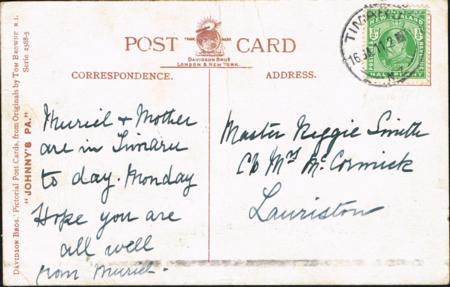 POST CARD
TRADE MARK
DAVIDSON BROS
LONDON & NEW YORK.
CORRESPONDENCE.
ADDRESS.
NEW ZEALAND
HALF PENNY
16 JA 11
Muriel & Mother
are in Timaru
to day. Monday
Hope you are
all well
from Muriel.
Master Reggie Smith
C/o Mrs McCormick
Lauriston
DAVIDSON BROS.' Pictorial Post Cards, from Originals by TOM BROWNE R.I.
Serie 2588-5
"JOHNNY'S PA."